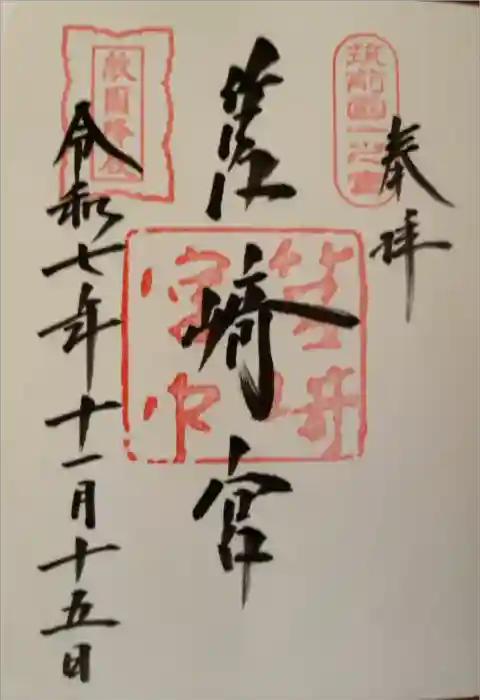 奉拝
筑前國一之宮
筥崎宮
筥崎宮印
敵国降伏
令和七年十一月十五日